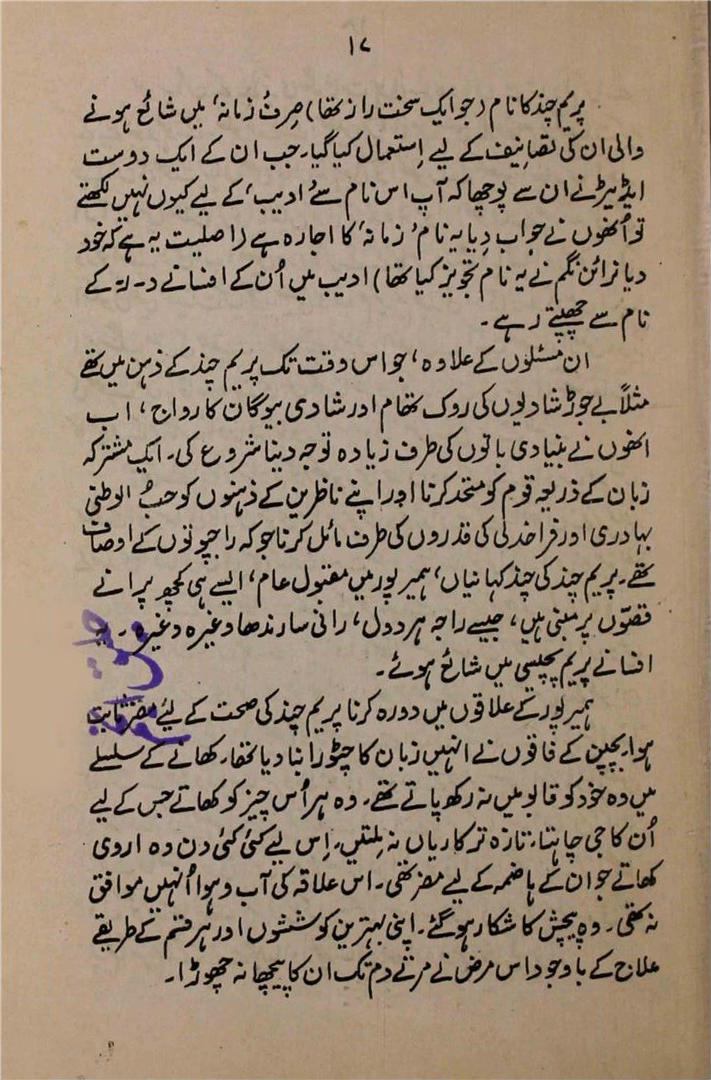 ۱۷
پریم چند کا نام (جو ایک سخت راز تھا) صِرف 'زمانہ' میں شائع ہونے
والی ان کی تصانیف کے لیے اِستعمال کیا گیا۔ جب ان کے ایک دوست
ایڈیٹر نے ان سے پوچھا کہ آپ اس نام سے 'ادیب' کے لیے کیوں نہیں لکھتے
تو اُنھوں نے جواب دِیا یہ نام 'زمانہ' کا اجارہ ہے (اصلیت یہ ہے کہ خود
دیا نرائن نگم نے یہ نام تجویز کیا تھا) ادیب میں اُن کے افسانے د۔ ر کے
نام سے چھپتے رہے۔
ان مسئلوں کے علاوہ، جو اس وقت تک پریم چند کے ذہن میں تھے
مثلاً بے جوڑ شادیوں کی روک تھام اور شادی بیوگان کا رواج، اب
انھوں نے بنیادی باتوں کی طرف زیادہ توجہ دینا شروع کی۔ ایک مشترکہ
زبان کے ذریعہ قوم کو متحد کرنا اور اپنے ناظرین کے ذہنوں کو حبُ الوطنی
بہادری اور فراخدلی کی قدروں کی طرف مائل کرنا جو کہ راجپوتوں کے اوصاف
تھے۔ پریم چند کی چند کہانیاں، ہمیرپور میں مقبول عام، ایسے ہی کچھ پرانے
قصّوں پر مبنی ہیں، جیسے راجہ ہردول، رانی سارندھا وغیرہ وغیرہ۔ یہ
افسانے پریم پچیسی میں شائع ہوئے۔
ہمیرپور کے علاقوں میں دورہ کرنا پریم چند کی صحت کے لئے مضر ثابت
ہوا۔ بچپن کے فاقوں نے انہیں زبان کا چٹورا بنا دیا تھا۔ کھانے کے سلسلے
میں وہ خود کو قابو میں نہ رکھ پاتے تھے۔ وہ ہر اُس چیز کو کھاتے جس کے لیے
اُن کا جی چاہتا۔ تازہ ترکاریاں نہ مِلتیں۔ اِس لیے کئی کئی دن وہ اروی
کھاتے جو ان کے ہاضمہ کے لیے مضر تھی۔ اس علاقہ کی آب و ہوا اُنہیں موافق
نہ تھی۔ وہ پیچش کا شکار ہو گئے۔ اپنی بہترین کوششوں اور ہر قسم کے طریقے
علاج کے باوجود اس مرض نے مرتے دم تک ان کا پیچھا نہ چھوڑا۔